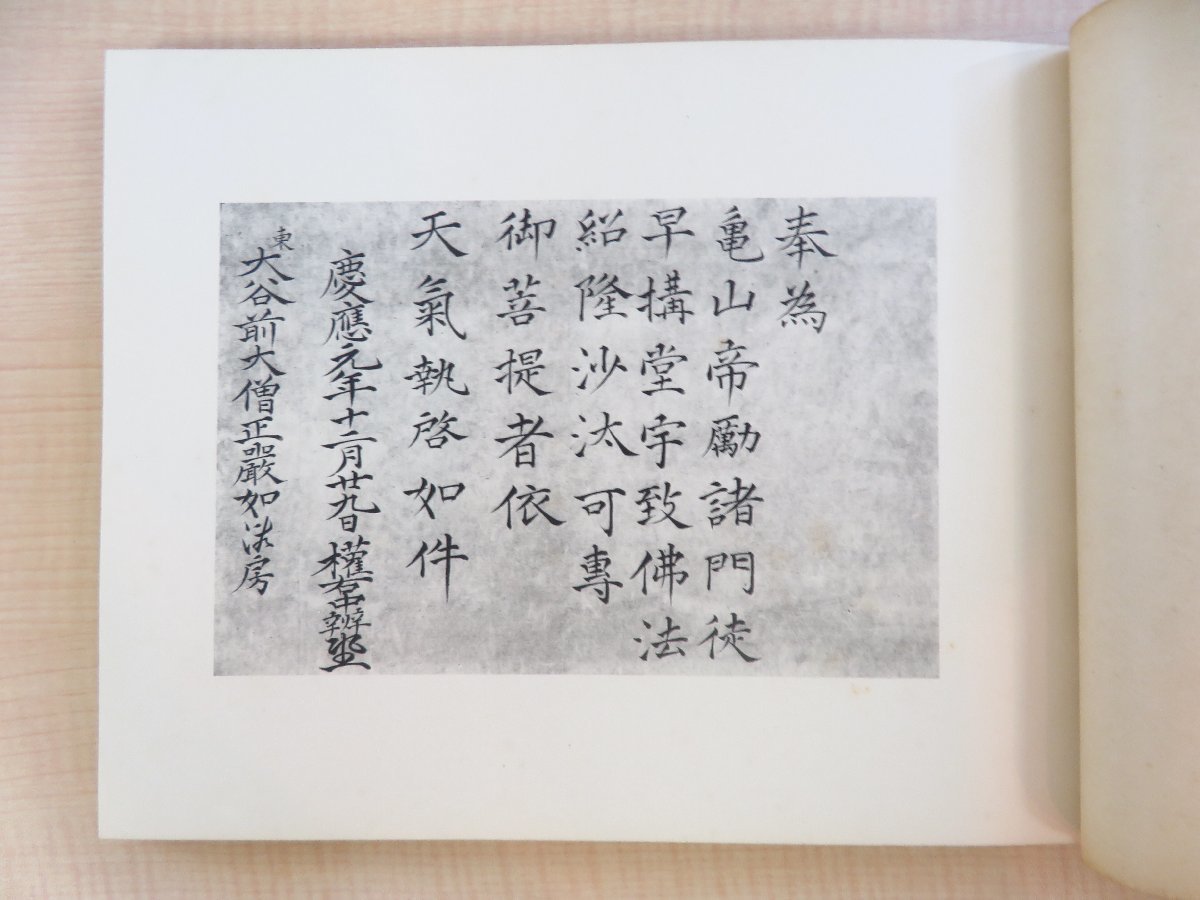 奉為
亀山帝勵諸門徒
早構堂宇致佛法
紹隆沙汰可專
御菩提者依
天氣執啓如件
慶應元年十二月廿九日 權右中辨
東
大谷前大僧正嚴如法房